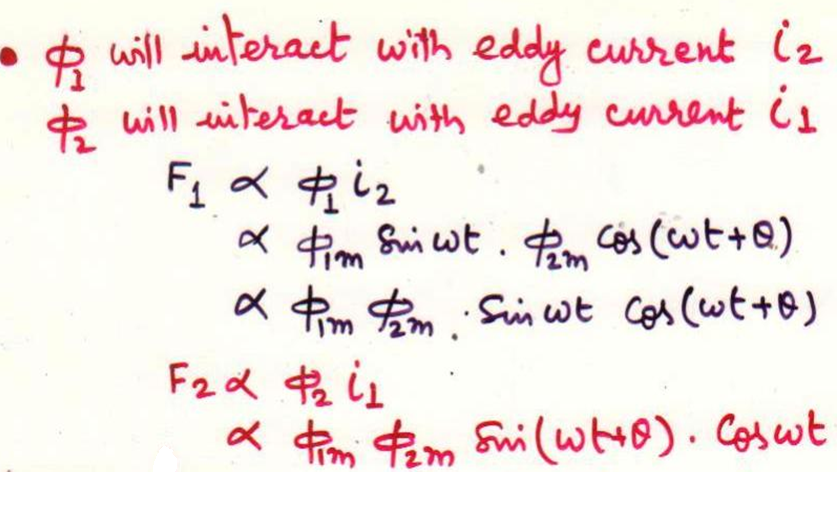 • ϕ₁ will interact with eddy current i₂
ϕ₂ will interact with eddy current i₁
F₁ ∝ ϕ₁ i₂
∝ ϕ₁ₘ Sin ωt . ϕ₂ₘ Cos (ωt+θ)
∝ ϕ₁ₘ ϕ₂ₘ . Sin ωt Cos (ωt+θ)
F₂ ∝ ϕ₂ i₁
∝ ϕ₁ₘ ϕ₂ₘ Sin (ωt+θ) . Cos ωt